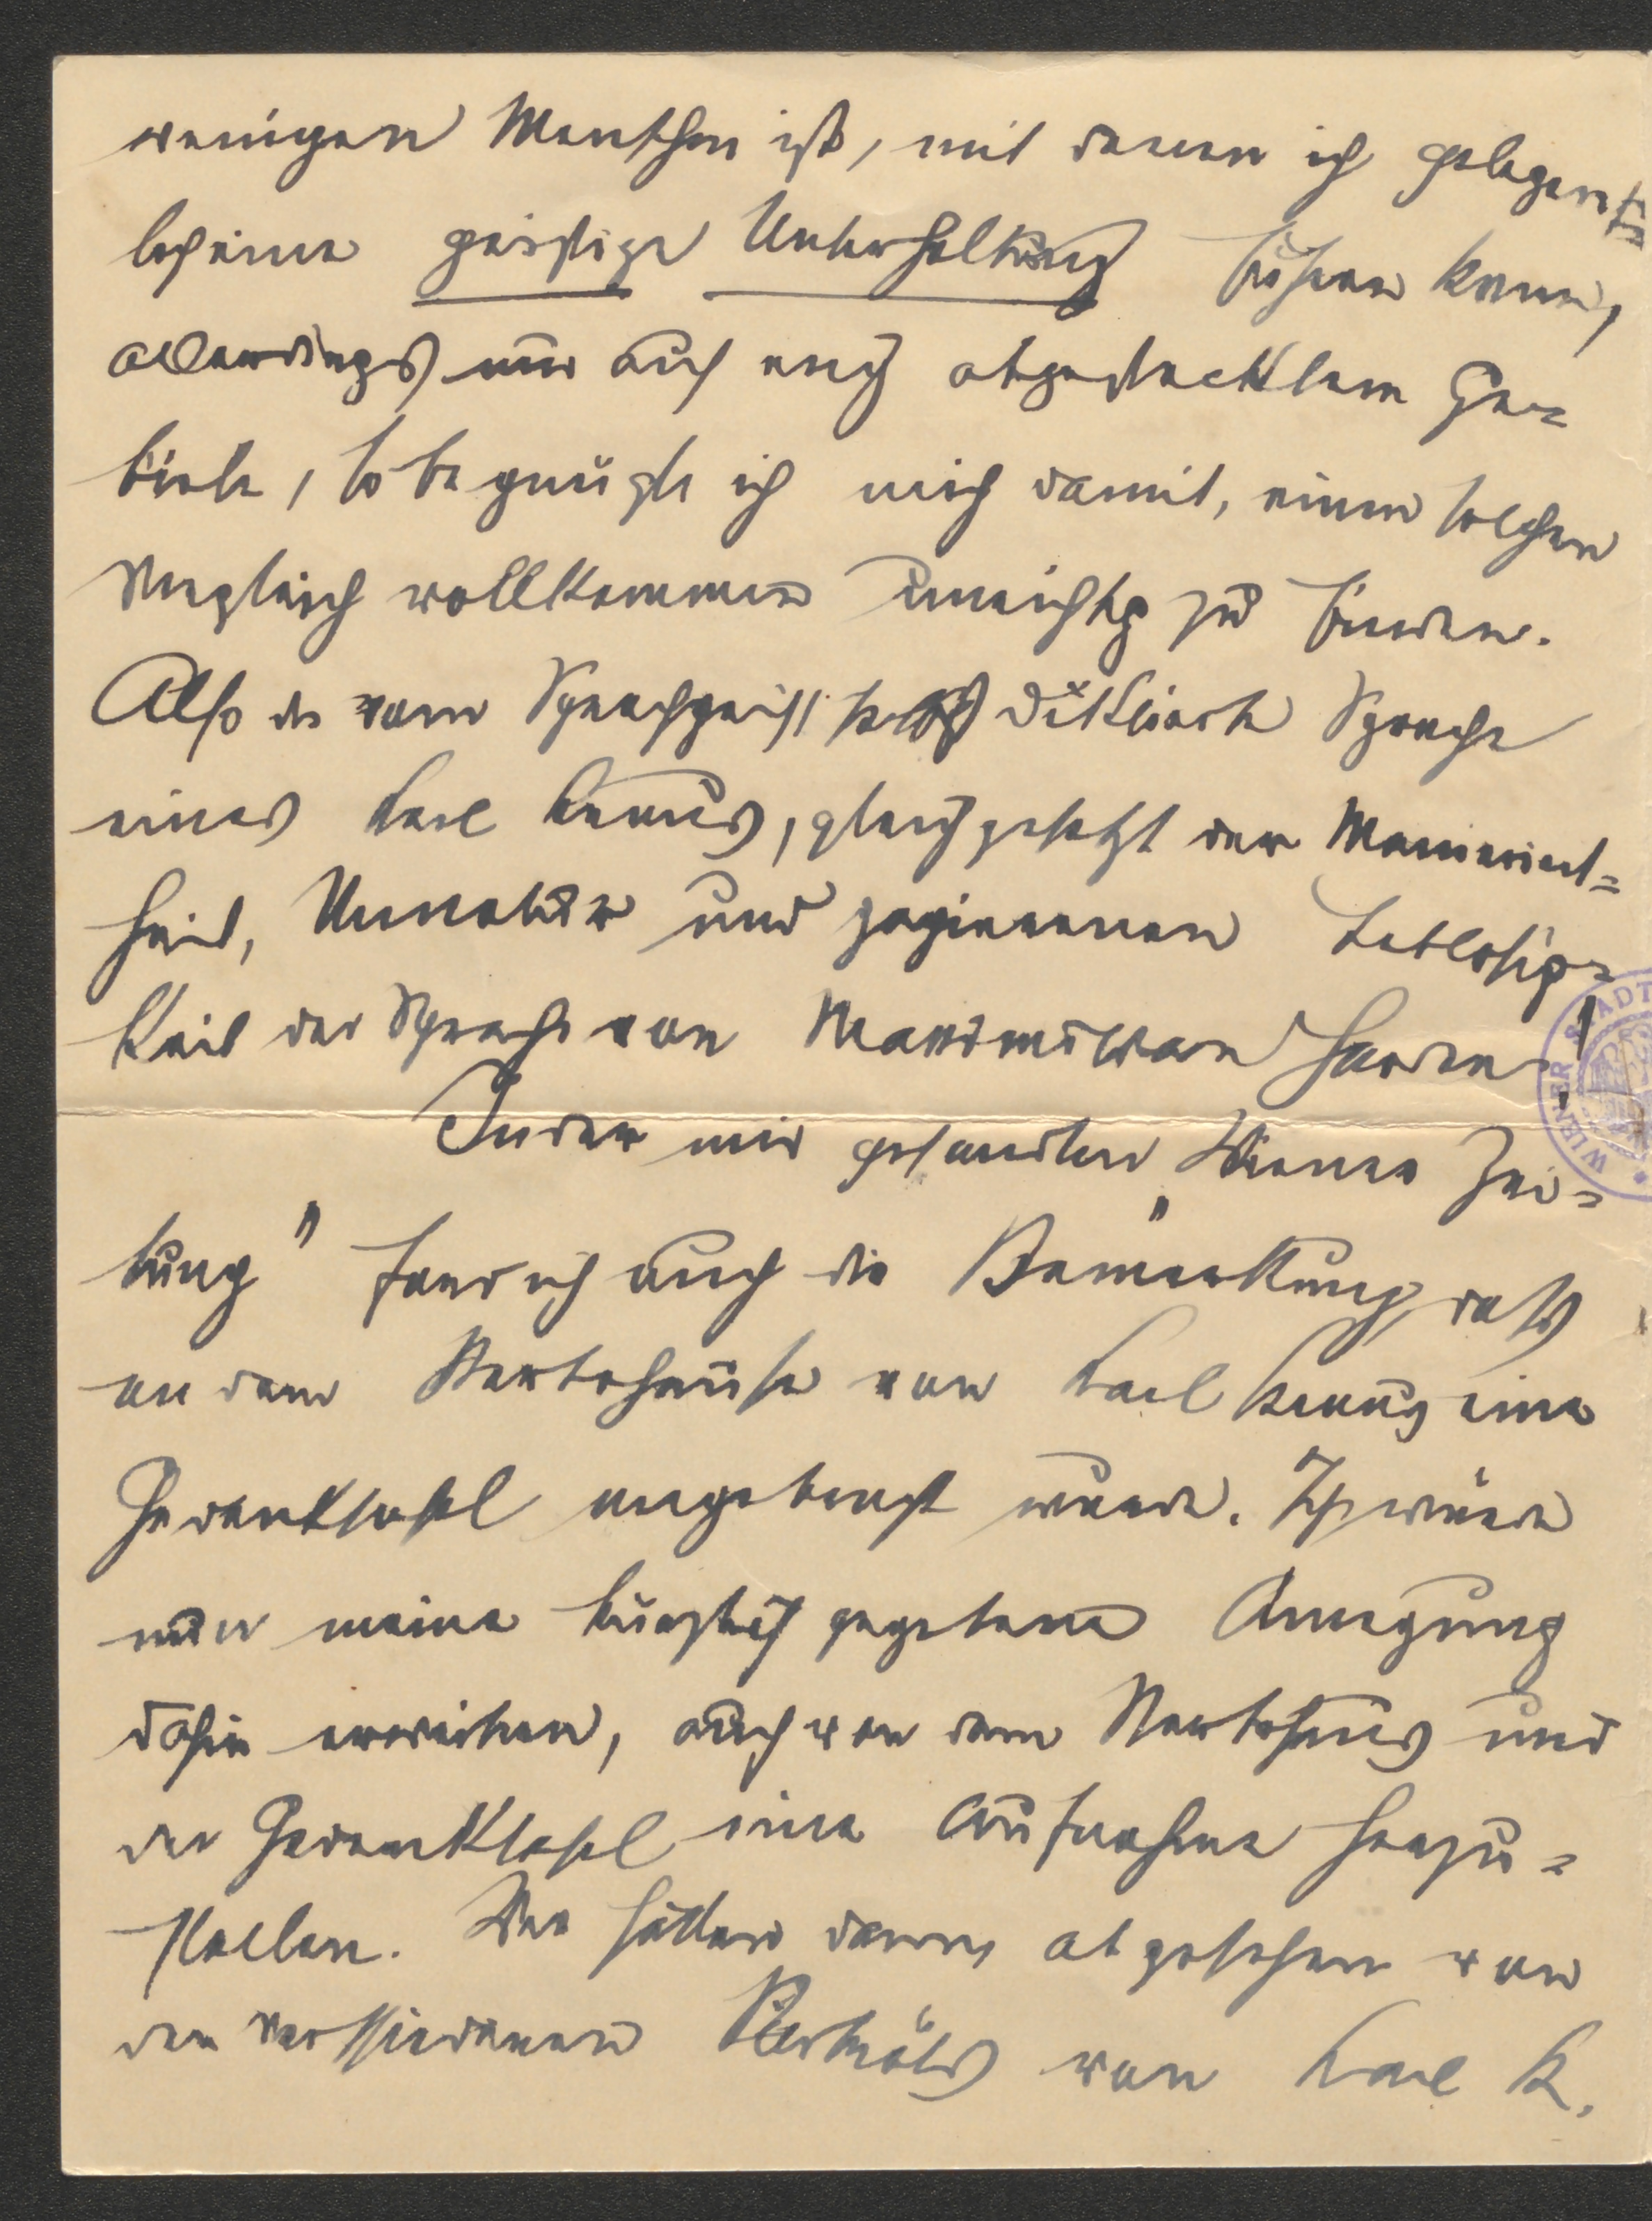 wenigen Menschen ist, mit denen ich gelegent=
lich eine geistige Unterhaltung führen kann,
allerdings nur auf eng abgestecktem Ge=
biete, so begnügte ich mich damit, einen solchen
Vergleich vollkommen unrichtig zu finden.
Also die vom Sprachgeist selbst diktierte Sprache
eines Karl Kraus, gleichgesetzt der Manieriert=
heit, Unnatur und gezierten Leblosig=
keit der Sprache von Maximilian Harden!
In der mir gesandten „Wiener Zei=
tung" fand ich auch die Bemerkung, daß
an dem Sterbehause von Karl Kraus eine
Gedenktafel angebracht wurde. Ich würde
nun meine kürzlich gegebene Anregung
dahin erweitern, auch von dem Sterbehaus und
der Gedenktafel eine Aufnahme herzu=
stellen. Wir hätten dann, abgesehen von
den verschiedenen Porträts von Karl K.
WIENER STADT